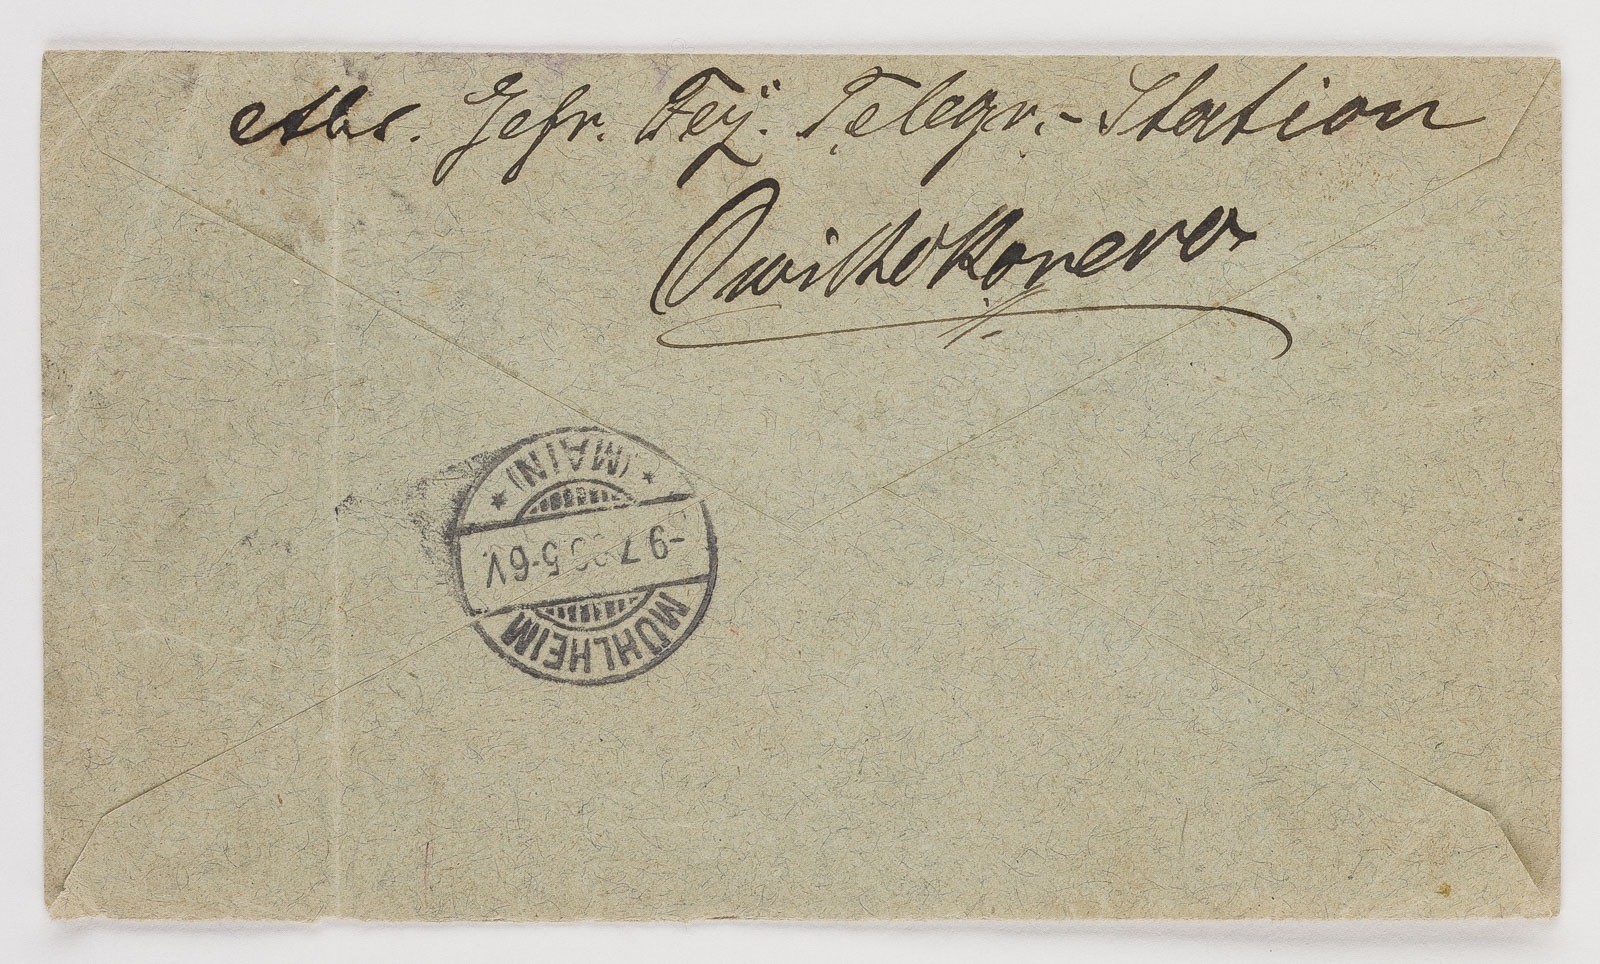 Abs. Gefr. Fey. Telegr.-Station
Owikokorero
* (MAIN) *
-9.7. 5-6V.
MÜHLHEIM